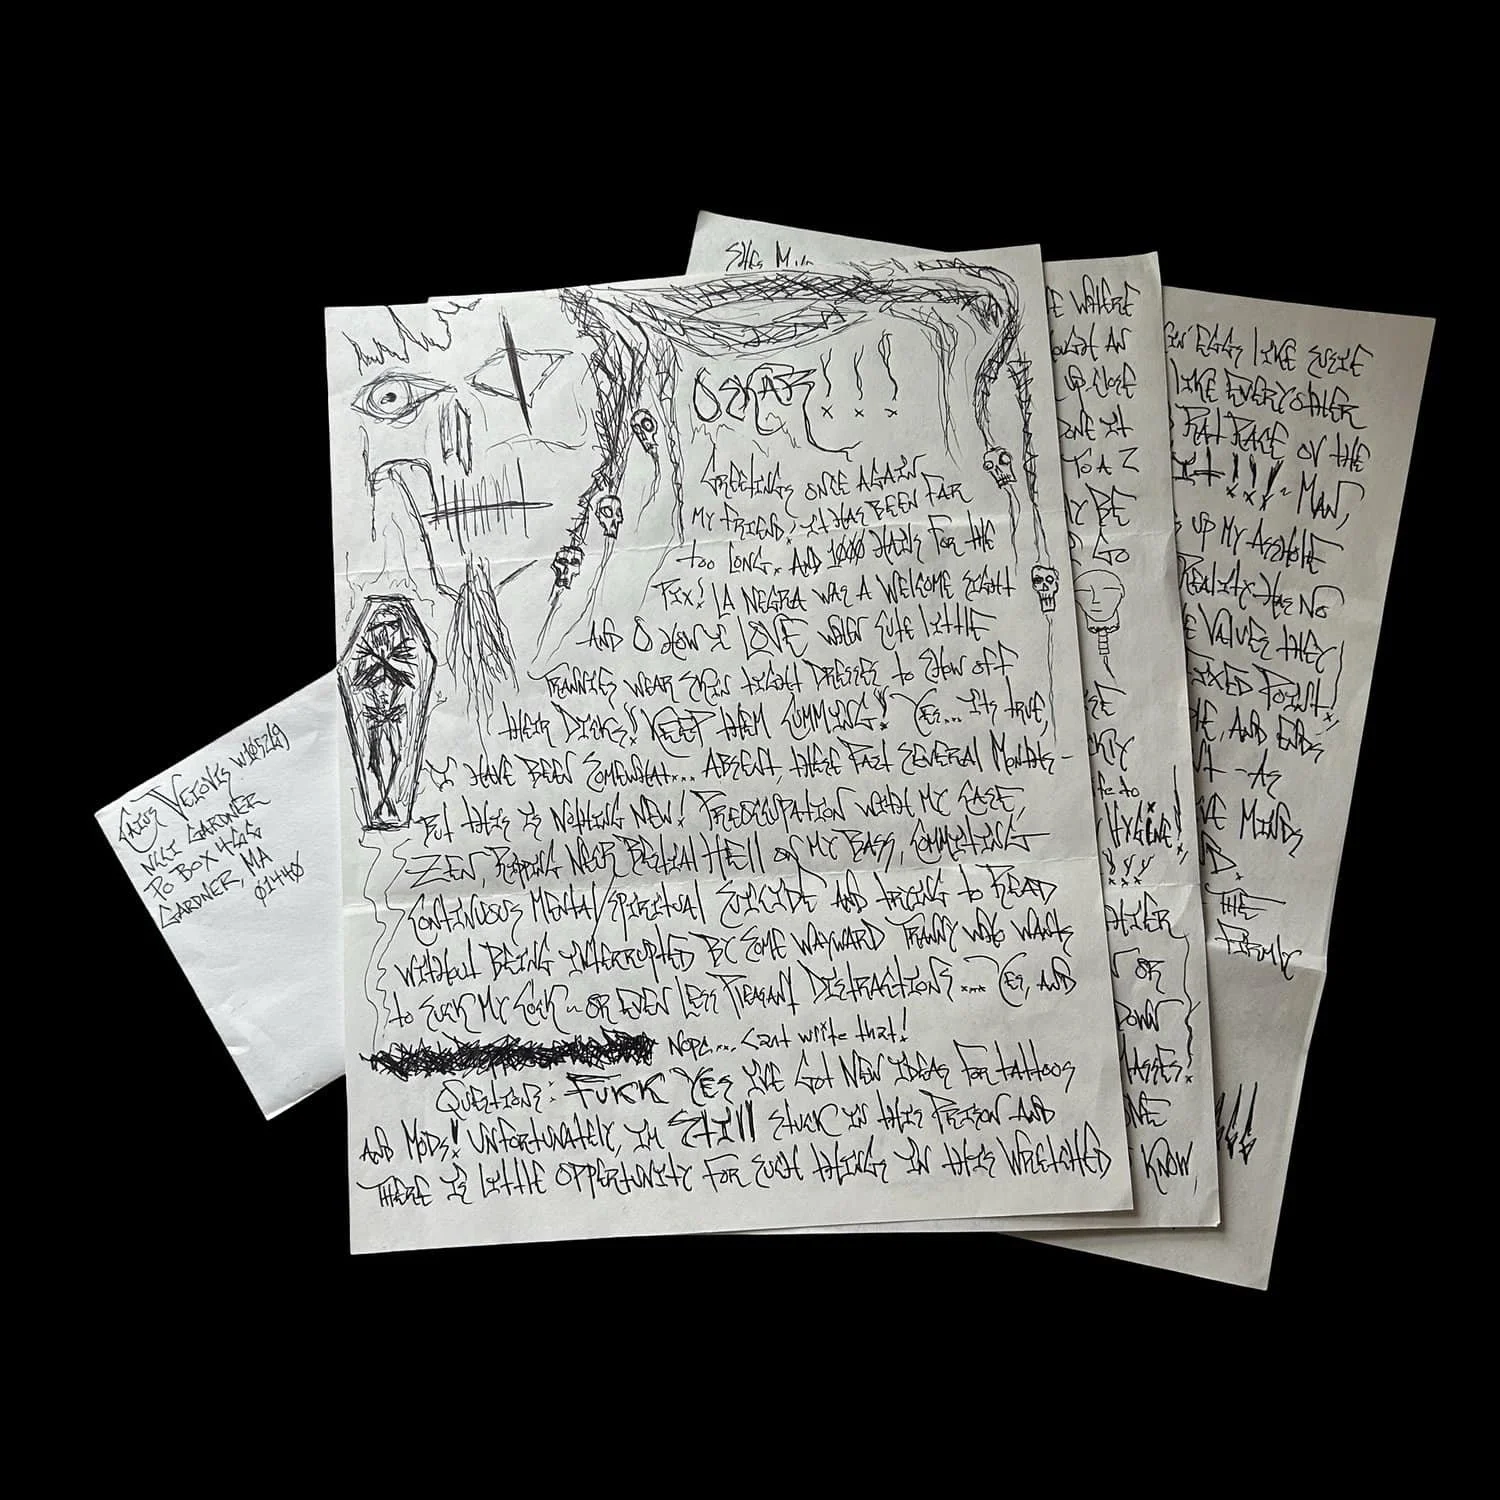 OSKAR!!!
GREETINGS ONCE AGAIN
MY FRIEND, IT HAS BEEN FAR
TOO LONG. AND 1000 HAILS FOR THE
PIX! LA NEGRA WAS A WELCOME SIGHT
AND O HOW I LOVE WHEN CUTE LITTLE
TRANNIES WEAR SKIN TIGHT DRESSES TO SHOW OFF
THEIR DICKS! KEEP THEM CUMMING! YES... ITS TRUE,
I HAVE BEEN SOMEWHAT... ABSENT, THESE PAST SEVERAL MONTHS -
BUT THIS IS NOTHING NEW! PREOCCUPATION WITH MY CASE,
ZEN, RIPPING NECRO BESTIAL HELL ON MY BASS, COMMITING
CONTINUOUS MENTAL/SPIRITUAL SUICIDE AND TRYING TO READ
WITHOUT BEING INTERRUPTED BY SOME WAYWARD TRANNY WHO WANTS
TO SUCK MY COCK - OR EVEN LESS PLEASANT DISTRACTIONS ... YES, AND
NOPE... Cant write that!
QUESTIONS: FUCK YES IVE GOT NEW IDEAS FOR TATTOOS
AND MODS! UNFORTUNATELY, IM STILL STUCK IN THIS PRISON AND
THERE IS LITTLE OPPORTUNITY FOR SUCH THINGS IN THIS WRETCHED
CAIUS VEIOVIS W105219
NCCI GARDNER
PO BOX 466
GARDNER, MA
01440
WHERE
AN
UP CLOSE
ONE IT
TO A Z
BE
GO
TO
HYGIENE!
OR
DOWN
ASSES!
KNOW,
EGGS LIKE SUSIE
LIKE EVERY OTHER
RAT RACE OV THE
MAN,
UP MY ASSHOLE
REALITY HAS NO
VALUES THEY
FIXED POINT!
AND ENDS
- AS
MINDS
THE
FIRMLY